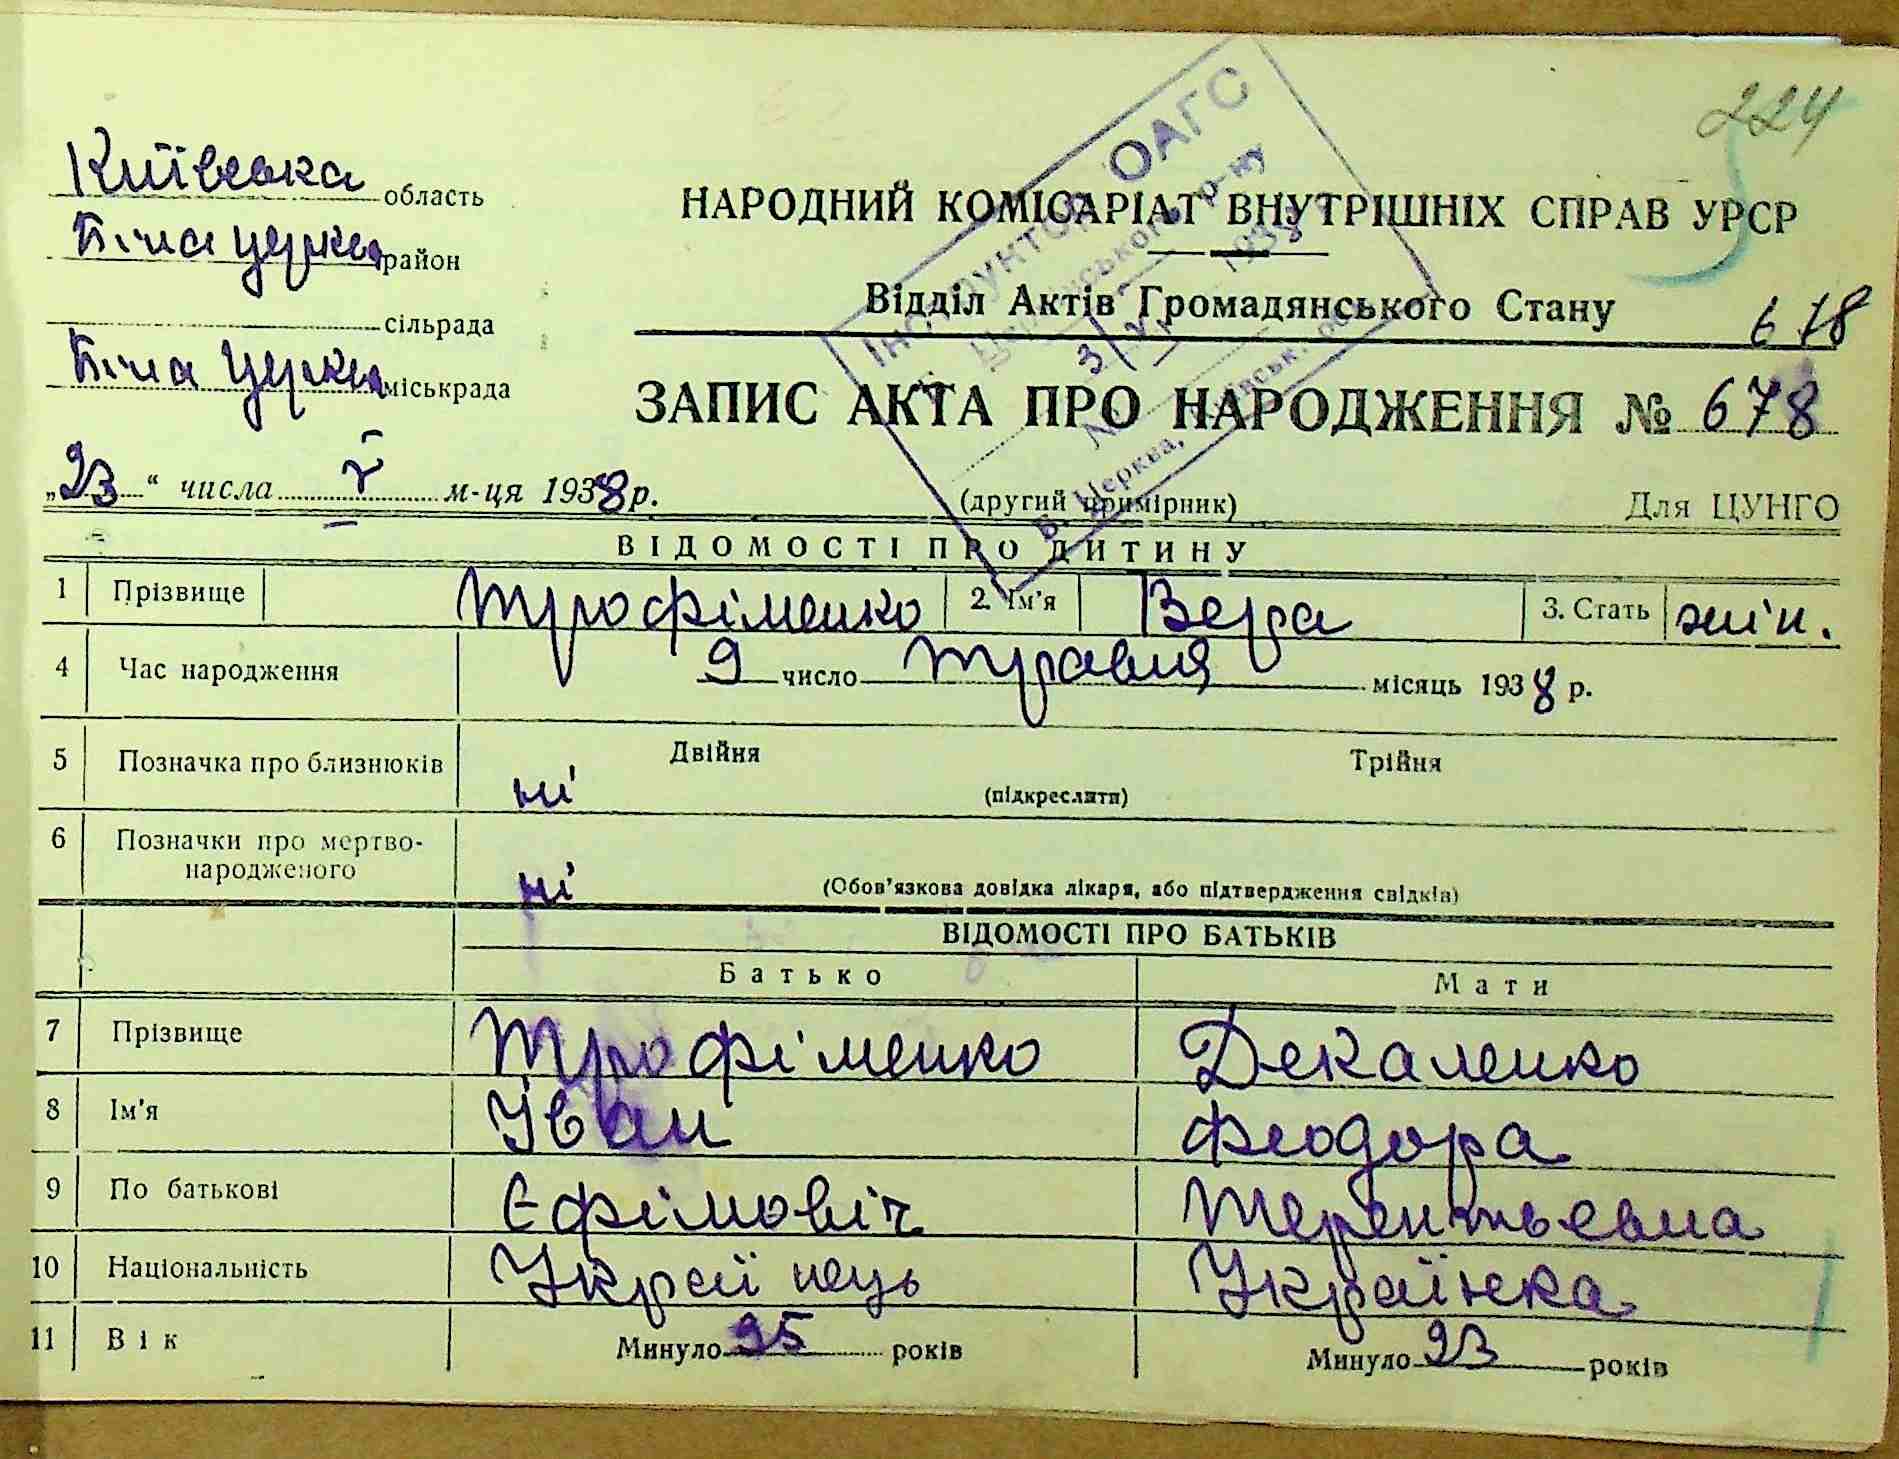 224
Київська область
Біла Церква район
сільрада
Біла Церква міськрада
НАРОДНИЙ КОМІСАРІАТ ВНУТРІШНІХ СПРАВ УРСР
Відділ Актів Громадянського Стану
678
ЗАПИС АКТА ПРО НАРОДЖЕННЯ № 678
„23“ числа V м-ця 1938 р.
(другий примірник)
Для ЦУНГО
Інструктор ОАГС
р-ну
Б. Церква,
ВІДОМОСТІ ПРО ДИТИНУ
1 Прізвище Трофіменко 2. Ім'я Вера 3. Стать жін.
4 Час народження 9 число травня місяць 1938 р.
5 Позначка про близнюків ні Двійня Трійня
(підкреслити)
6 Позначки про мертво-
народженого ні (Обов'язкова довідка лікаря, або підтвердження свідків)
ВІДОМОСТІ ПРО БАТЬКІВ
Батько Мати
7 Прізвище Трофіменко Декаленко
8 Ім'я Іван Феодора
9 По батькові Єфімовіч Терентьевна
10 Національність Українець Українка
11 Вік Минуло 25 років Минуло 23 років